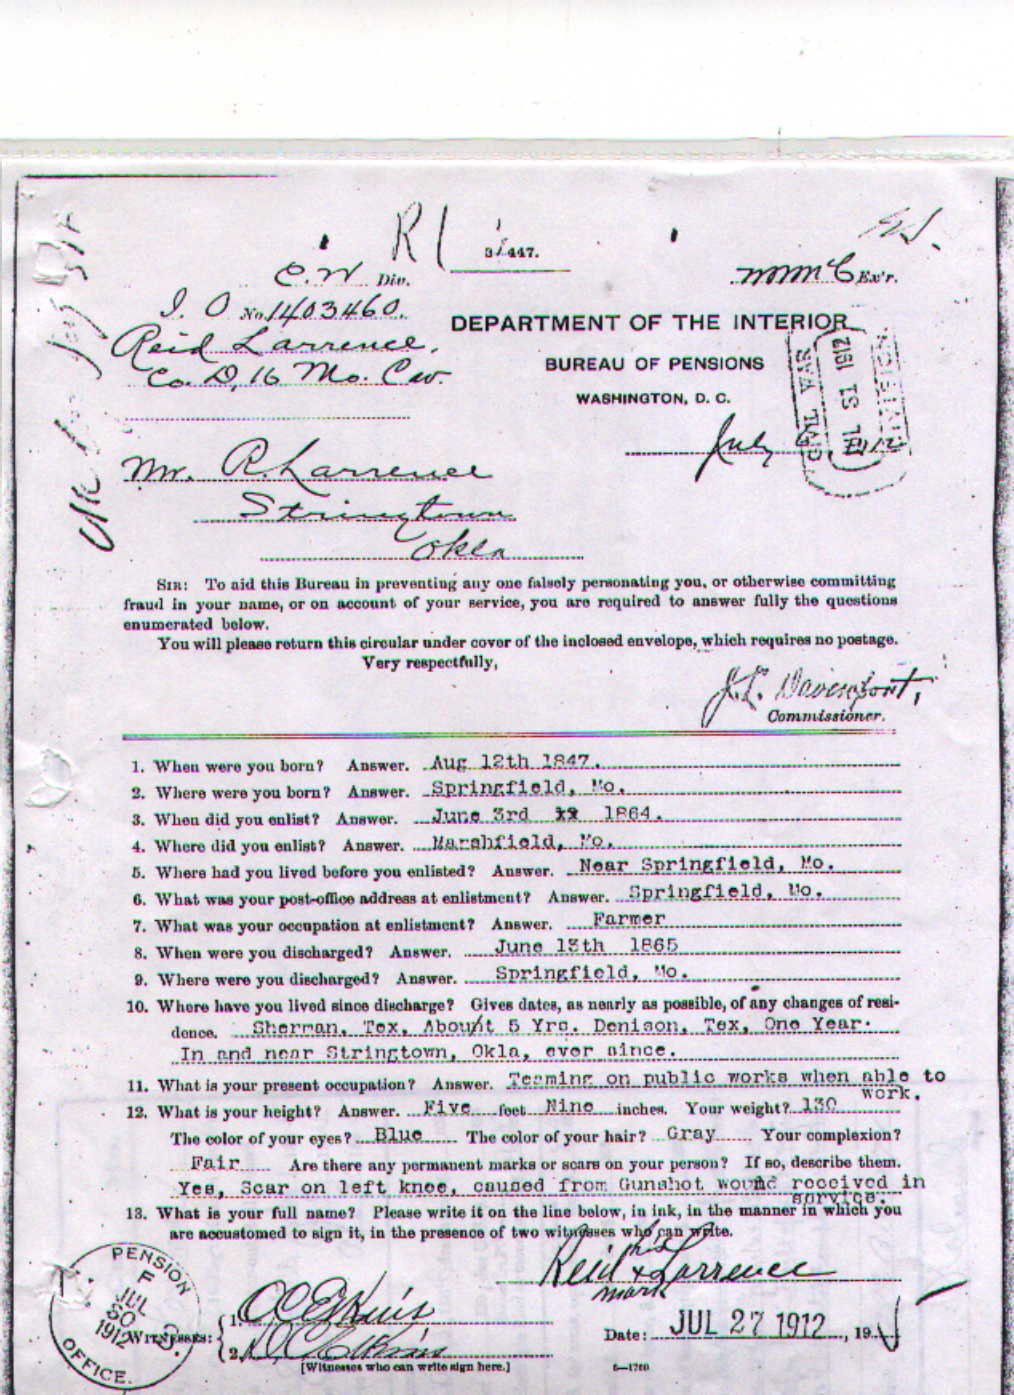 R
31447.
C.W Div.
mmmC Ex'r.
I. O No. 1403460.
Reid Larrence,
Co. D, 16 Mo. Cav.
DEPARTMENT OF THE INTERIOR
BUREAU OF PENSIONS
WASHINGTON, D. C.
July 1912
CIVIL WAR
JUL 31 1912
Mr. R. Larrence
Stringtown
Okla
SIR: To aid this Bureau in preventing any one falsely personating you, or otherwise committing
fraud in your name, or on account of your service, you are required to answer fully the questions
enumerated below.
You will please return this circular under cover of the inclosed envelope, which requires no postage.
Very respectfully,
J.L. Davenport,
Commissioner.
1. When were you born? Answer. Aug 12th 1847.
2. Where were you born? Answer. Springfield, Mo.
3. When did you enlist? Answer. June 3rd 1864.
4. Where did you enlist? Answer. Marshfield, Mo.
5. Where had you lived before you enlisted? Answer. Near Springfield, Mo.
6. What was your post-office address at enlistment? Answer. Springfield, Mo.
7. What was your occupation at enlistment? Answer. Farmer
8. When were you discharged? Answer. June 13th 1865
9. Where were you discharged? Answer. Springfield, Mo.
10. Where have you lived since discharge? Gives dates, as nearly as possible, of any changes of resi-
dence. Sherman, Tex, About 5 Yrs. Denison, Tex, One Year.
In and near Stringtown, Okla, ever since.
11. What is your present occupation? Answer. Teaming on public works when able to
work.
12. What is your height? Answer. Five feet Nine inches. Your weight? 130
The color of your eyes? Blue The color of your hair? Gray Your complexion?
Fair Are there any permanent marks or scars on your person? If so, describe them.
Yes, Scar on left knee, caused from Gunshot wound received in
service.
13. What is your full name? Please write it on the line below, in ink, in the manner in which you
are accustomed to sign it, in the presence of two witnesses who can write.
his
Reid x Larrence
mark
PENSION
F
JUL
30
1912
OFFICE.
WITNESSES:
1.
2.
[Witnesses who can write sign here.]
Date: JUL 27 1912, 19
6—1760